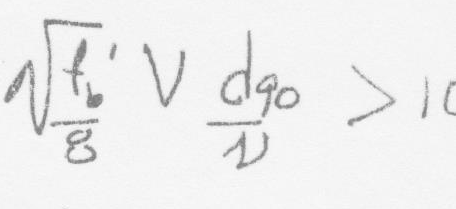 √(f_b'/8) V d90/ν > 10